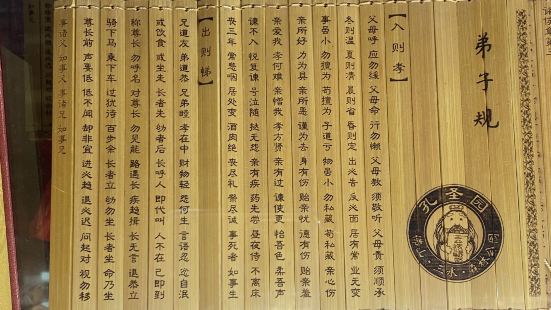 弟子规
孔圣园
【入则孝】
父母呼 应勿缓 父母命 行勿懒 父母教 须敬听 父母责 须顺承
冬则温 夏则清 晨则省 昏则定 出必告 反必面 居有常 业无变
事虽小 勿擅为 苟擅为 子道亏 物虽小 勿私藏 苟私藏 亲心伤
亲所好 力为具 亲所恶 谨为去 身有伤 贻亲忧 德有伤 贻亲羞
亲爱我 孝何难 亲憎我 孝方贤 亲有过 谏使更 怡吾色 柔吾声
谏不入 悦复谏 号泣随 挞无怨 亲有疾 药先尝 昼夜侍 不离床
丧三年 常悲咽 居处变 酒肉绝 丧尽礼 祭尽诚 事死者 如事生
【出则悌】
兄道友 弟道恭 兄弟睦 孝在中 财物轻 怨何生 言语忍 忿自泯
或饮食 或坐走 长者先 幼者后 长呼人 即代叫 人不在 己即到
称尊长 勿呼名 对尊长 勿见能 路遇长 疾趋揖 长无言 退恭立
骑下马 乘下车 过犹待 百步余 长者立 幼勿坐 长者坐 命乃坐
尊长前 声要低 低不闻 却非宜 进必趋 退必迟 问起对 视勿移
事诸父 如事父 事诸兄 如事兄